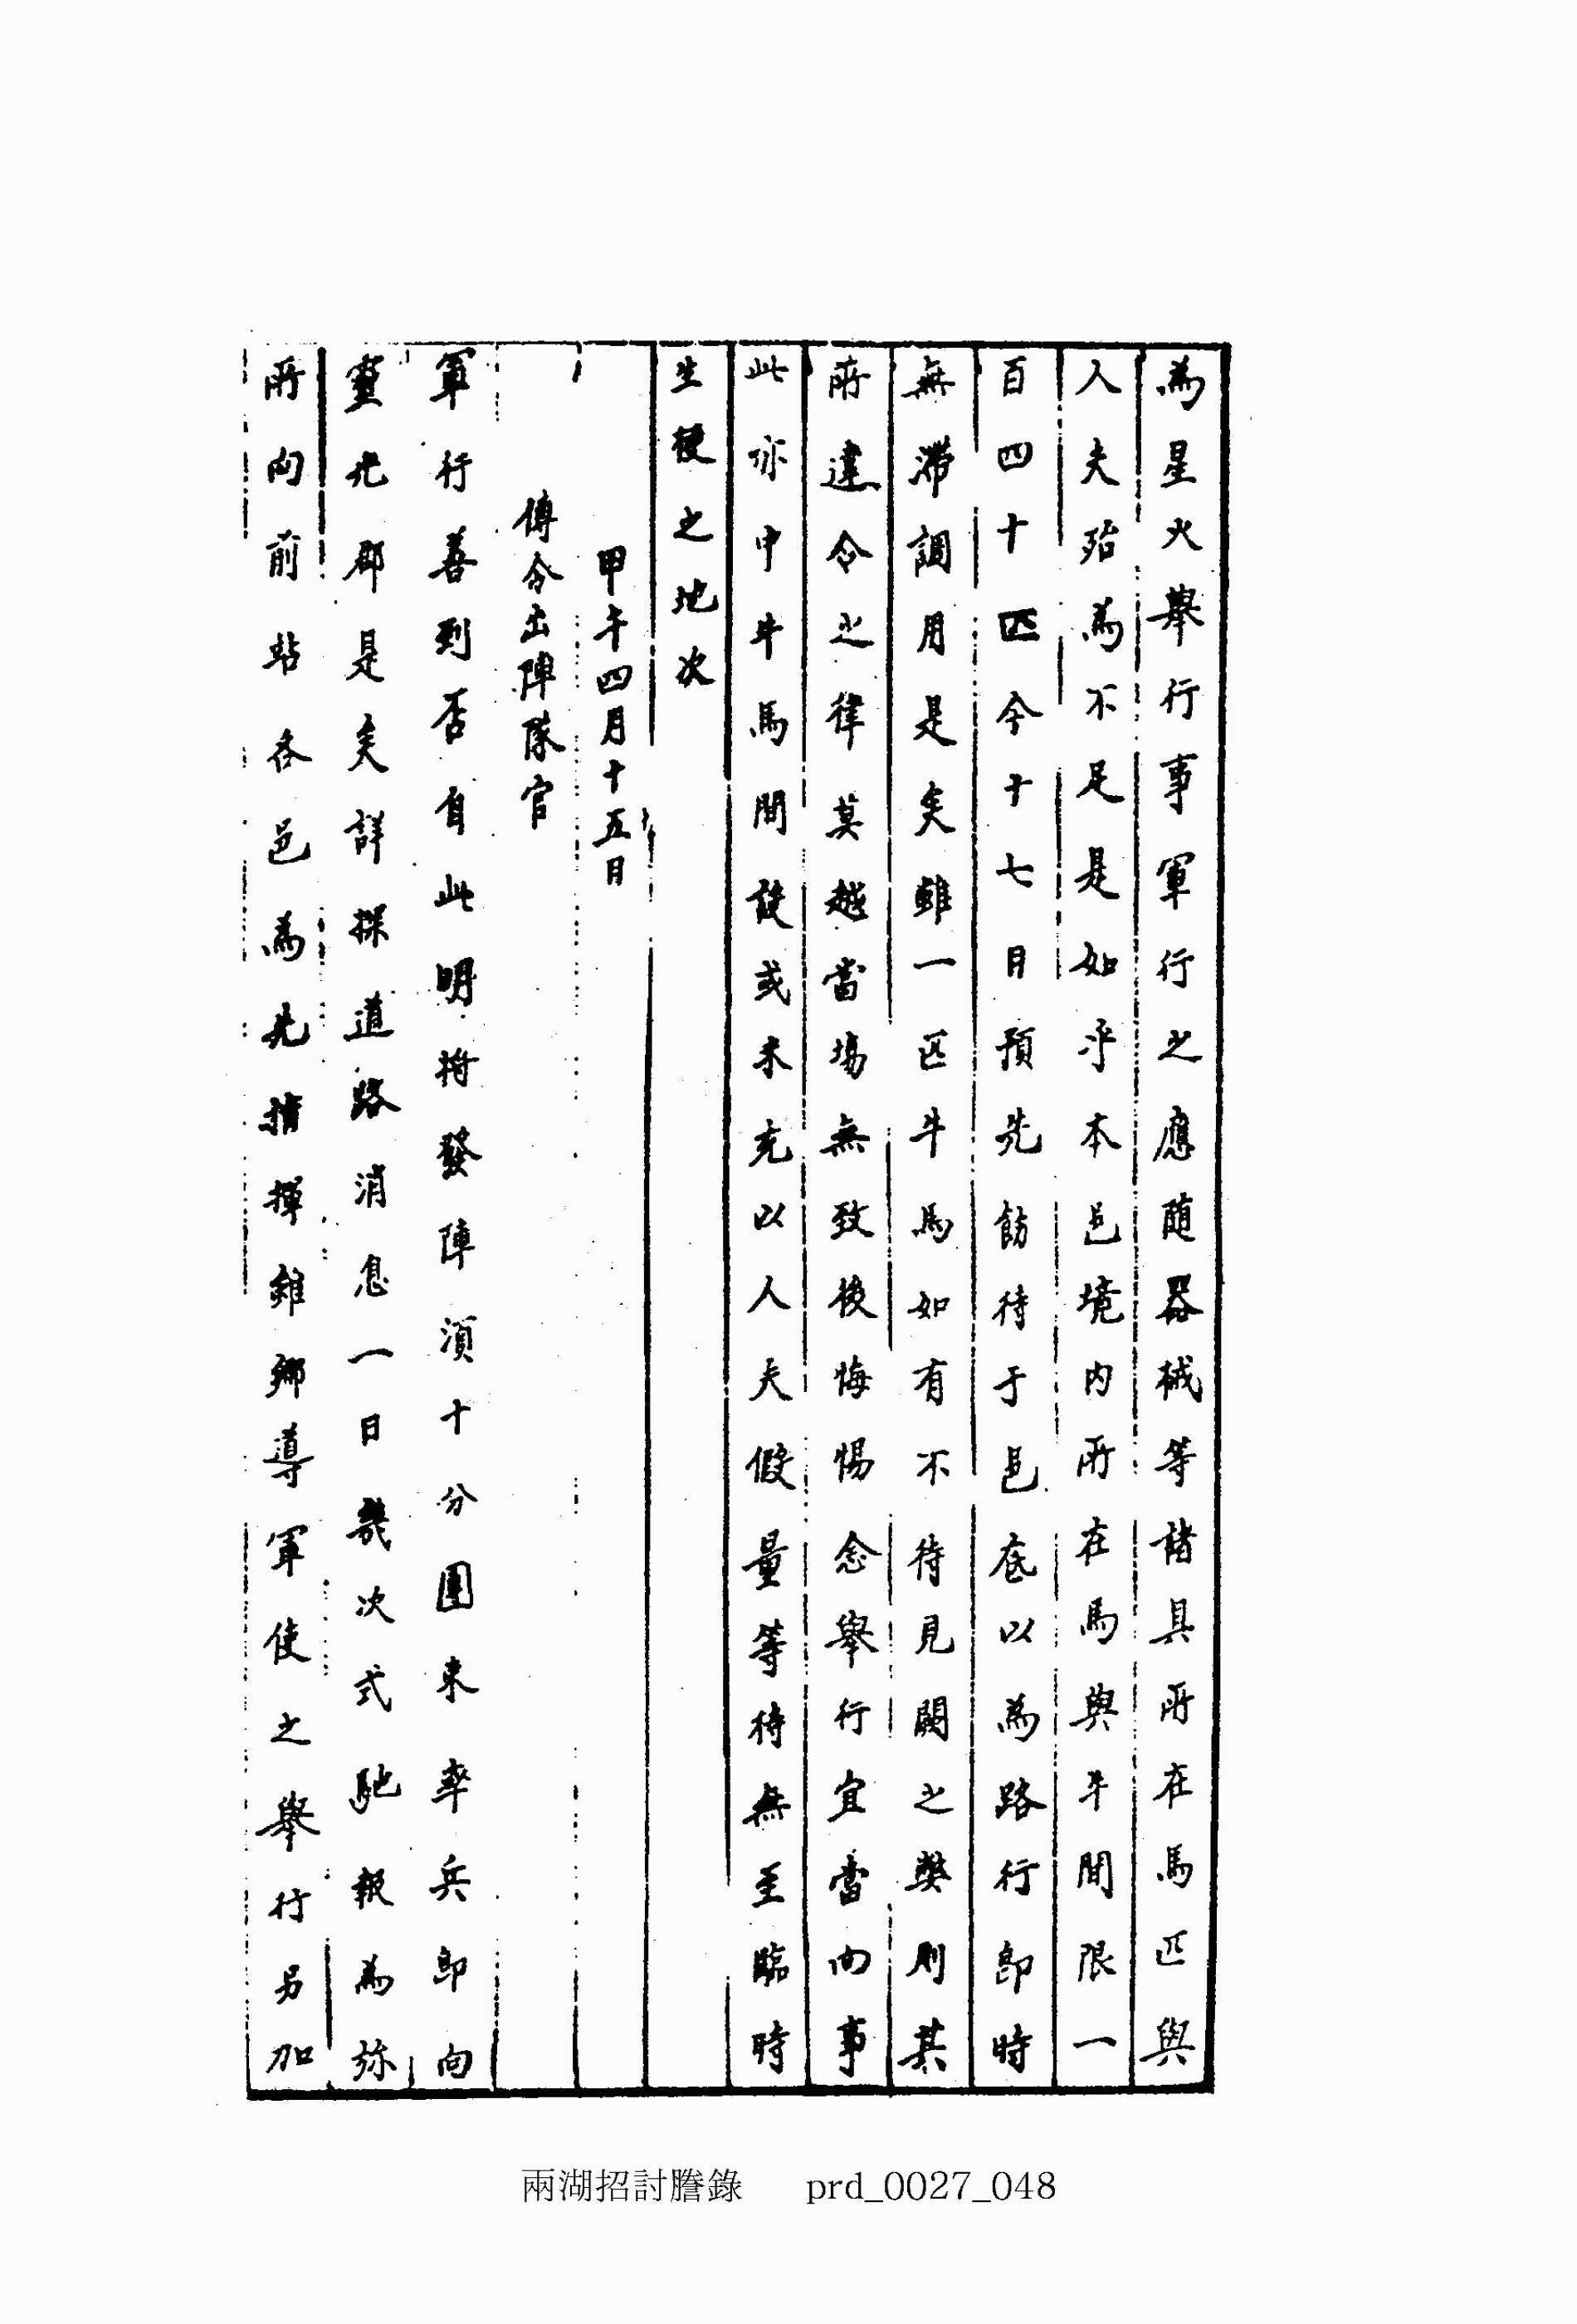 為星火擧行事軍行之應随器械等諸具所在馬匹與
人夫殆為不足是如乎本邑境內所在馬與牛間限一
百四十匹今十七日預先飭待于邑底以為路行卽時
無滯調用是矣雖一匹牛馬如有不待見闕之弊則其
所違令之律莫越當場無致後悔惕念擧行宜當向事
此亦中牛馬間設或未充以人夫假量等待無至臨時
生梗之地次
甲午四月十五日
傳令出陣隊官
軍行善到否自此明將發陣須十分團束率兵卽向
靈光郡是矣詳探道路消息一日幾次式馳報為旀
所向前站各邑為先指揮雖鄕導軍使之擧行另加
兩湖招討謄錄 prd_0027_048